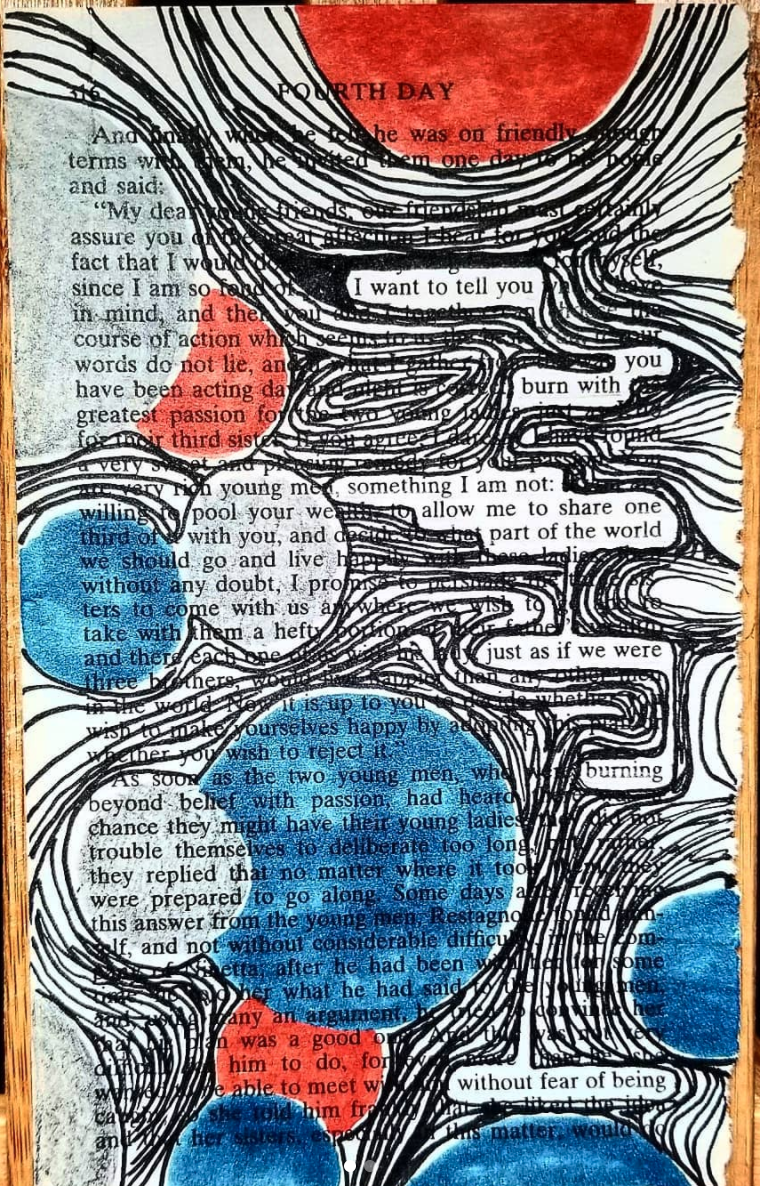 316 FOURTH DAY
And finally, when he felt he was on friendly enough
terms with them, he invited them one day to his
and said:
"My dear young friends, our friendship must certainly
assure you of the great affection I bear for you and the
fact that I would do for myself,
since I am so fond of I want to tell you have
in mind, and then you and I together
course of action which seems to us the best
words do not lie, and what I gather you
have been acting day and night is burn with
greatest passion for the two young ladies, just
for their third sister. If you agree, I found
a very sweet and pleasing remedy for your
are very rich young men, something I am not:
willing to pool your wealth, to allow me to share one
third of it with you, and decide to what part of the world
we should go and live happily with these ladies
without any doubt, I promise to persuade the
ters to come with us anywhere we wish to to
take with them a hefty portion of their father's
and there each one of us with his just as if we were
three brothers, would live happier than any other men
in the world. Now it is up to you to decide whether
wish to make yourselves happy by
whether you wish to reject it."
As soon as the two young men, who were burning
beyond belief with passion, had heard
chance they might have their young ladies, did not
trouble themselves to deliberate too long, rather,
they replied that no matter where it took them, they
were prepared to go along. Some days after receiving
this answer from the young men, Restagnone found him-
self, and not without considerable difficulty, in the com-
pany of Ninetta; after he had been with her for some
time, he told her what he had said to the young men,
and, using many an argument, he tried to convince her
that his plan was a good one. And this was not very
difficult for him to do, for
wanted to be able to meet with him without fear of being
she told him frankly that she liked the idea
and that her sisters, especially in this matter, would do